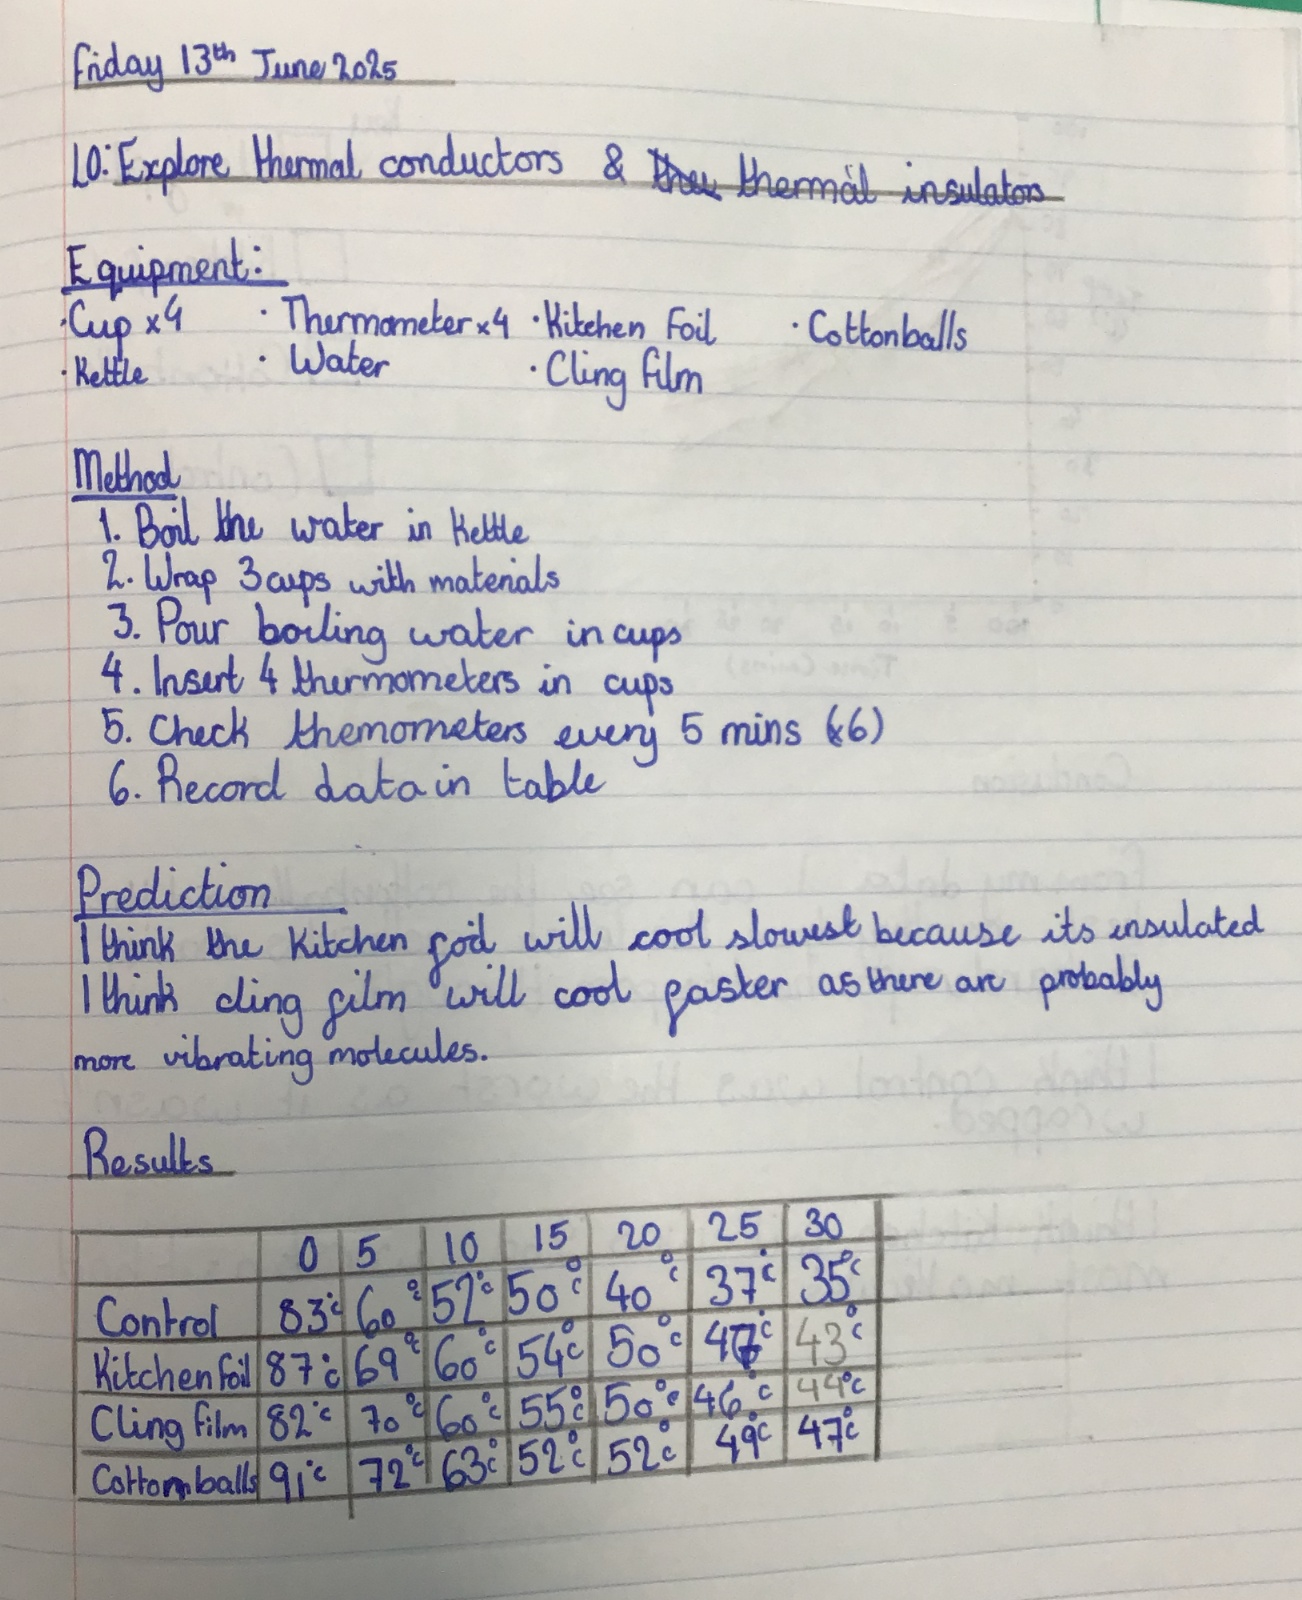 Friday 13th June 2025
LO: Explore thermal conductors & thermal insulators
Equipment:
· Cup x4 · Thermometer x4 · Kitchen Foil · Cottonballs
· Kettle · Water · Cling film
Method
1. Boil the water in Kettle
2. Wrap 3 cups with materials
3. Pour boiling water in cups
4. Insert 4 thermometers in cups
5. Check themometers every 5 mins (x6)
6. Record data in table
Prediction
I think the Kitchen foil will cool slowest because its insulated
I think cling film will cool faster as there are probably
more vibrating molecules.
Results
0 5 10 15 20 25 30
Control 83°c 60°c 52°c 50°c 40°c 37°c 35°c
Kitchen foil 87°c 69°c 60°c 54°c 50°c 43°c
Cling film 82°c 70°c 60°c 55°c 50°c 46°c 44°c
Cottonballs 91°c 72°c 63°c 52°c 52°c 49°c 47°c